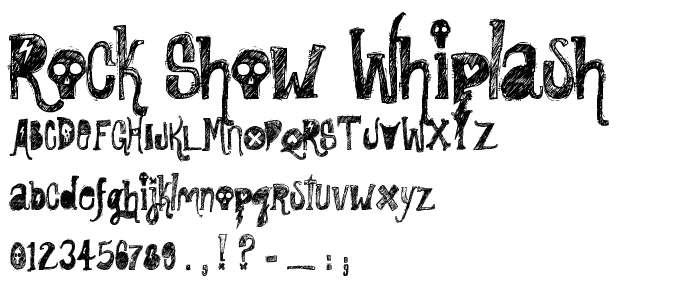 Rock Show Whiplash
ABCDEFGHIJKLMNOPQRSTUVWXYZ
abcdefghijklmnopqrstuvwxyz
0123456789 . , ! ? - _ : ;